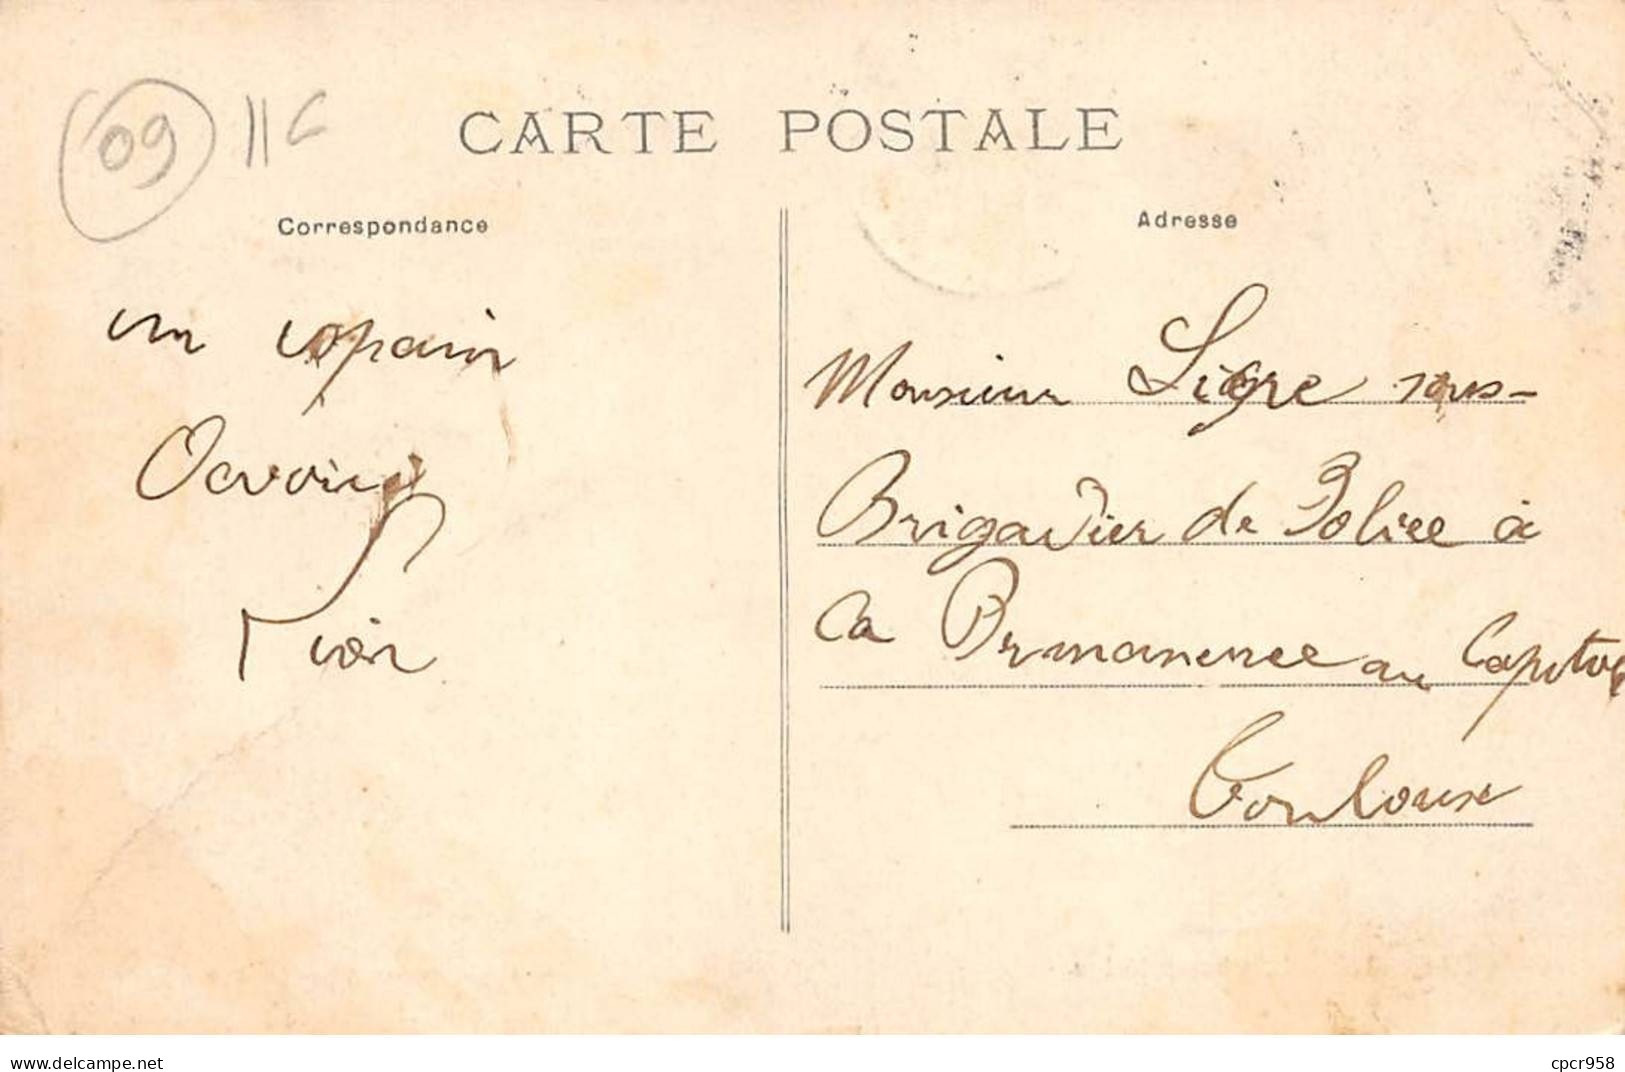 09 11C
CARTE POSTALE
Correspondance
un copain
Adresse
Monsieur Ligre sous-
Brigadier de Police à
la Permanence au Capitole
Toulouse
delcampe.net
cpcr958